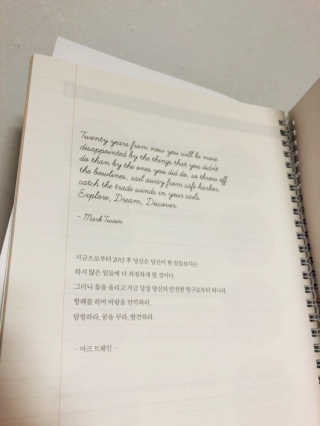 Twenty years from now you will be more
disappointed by the things that you didn't
do than by the ones you did do, so throw off
the bowlines, sail away from safe harbor,
catch the trade winds in your sails.
Explore, Dream, Discover.
- Mark Twain
지금으로부터 20년 후 당신은 당신이 한 일들보다는
하지 않은 일들에 더 좌절하게 될 것이다.
그러니 돛을 올리고 지금 당장 당신의 안전한 항구로부터 떠나라.
항해를 하며 바람을 만끽하라.
탐험하라, 꿈을 꾸라, 발견하라.
- 마크 트웨인 -